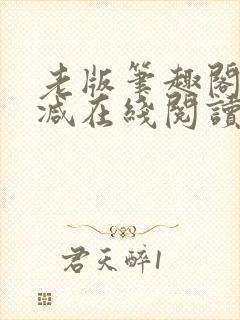 老版筆趣閣
減在綫閱讀
君天醉1